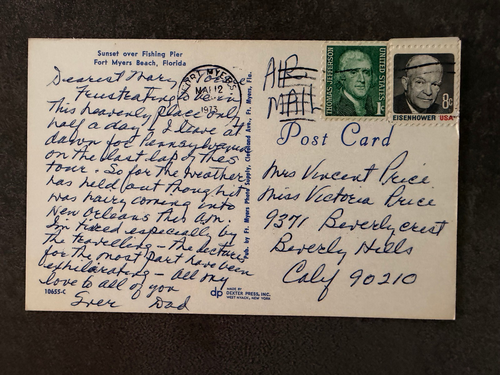 Sunset over Fishing Pier
Fort Myers Beach, Florida
Dearest Mary,
Frustrating to be in
this heavenly place only
half a day. I leave at
dawn for Pennsylvania
on the last lap of this
tour. So far the weather
has held out though it
was hairy coming into
New Orleans this A.M.
I'm tired especially by
the travelling - the lectures
for the most part have been
exhilarating - All my
love to all of you
Ever Dad
10655-C
FORT MYERS
MA 12
1973
Pub. by Ft. Myers Photo Supply, Cleveland Ave., Ft. Myers, Fla.
dp
MADE BY
DEXTER PRESS, INC.
WEST NYACK, NEW YORK
AIR
MAIL
THOMAS JEFFERSON
UNITED STATES
1c
8c
EISENHOWER USA
Post Card
Mrs Vincent Price
Miss Victoria Price
9371 Beverlycrest
Beverly Hills
Calif 90210